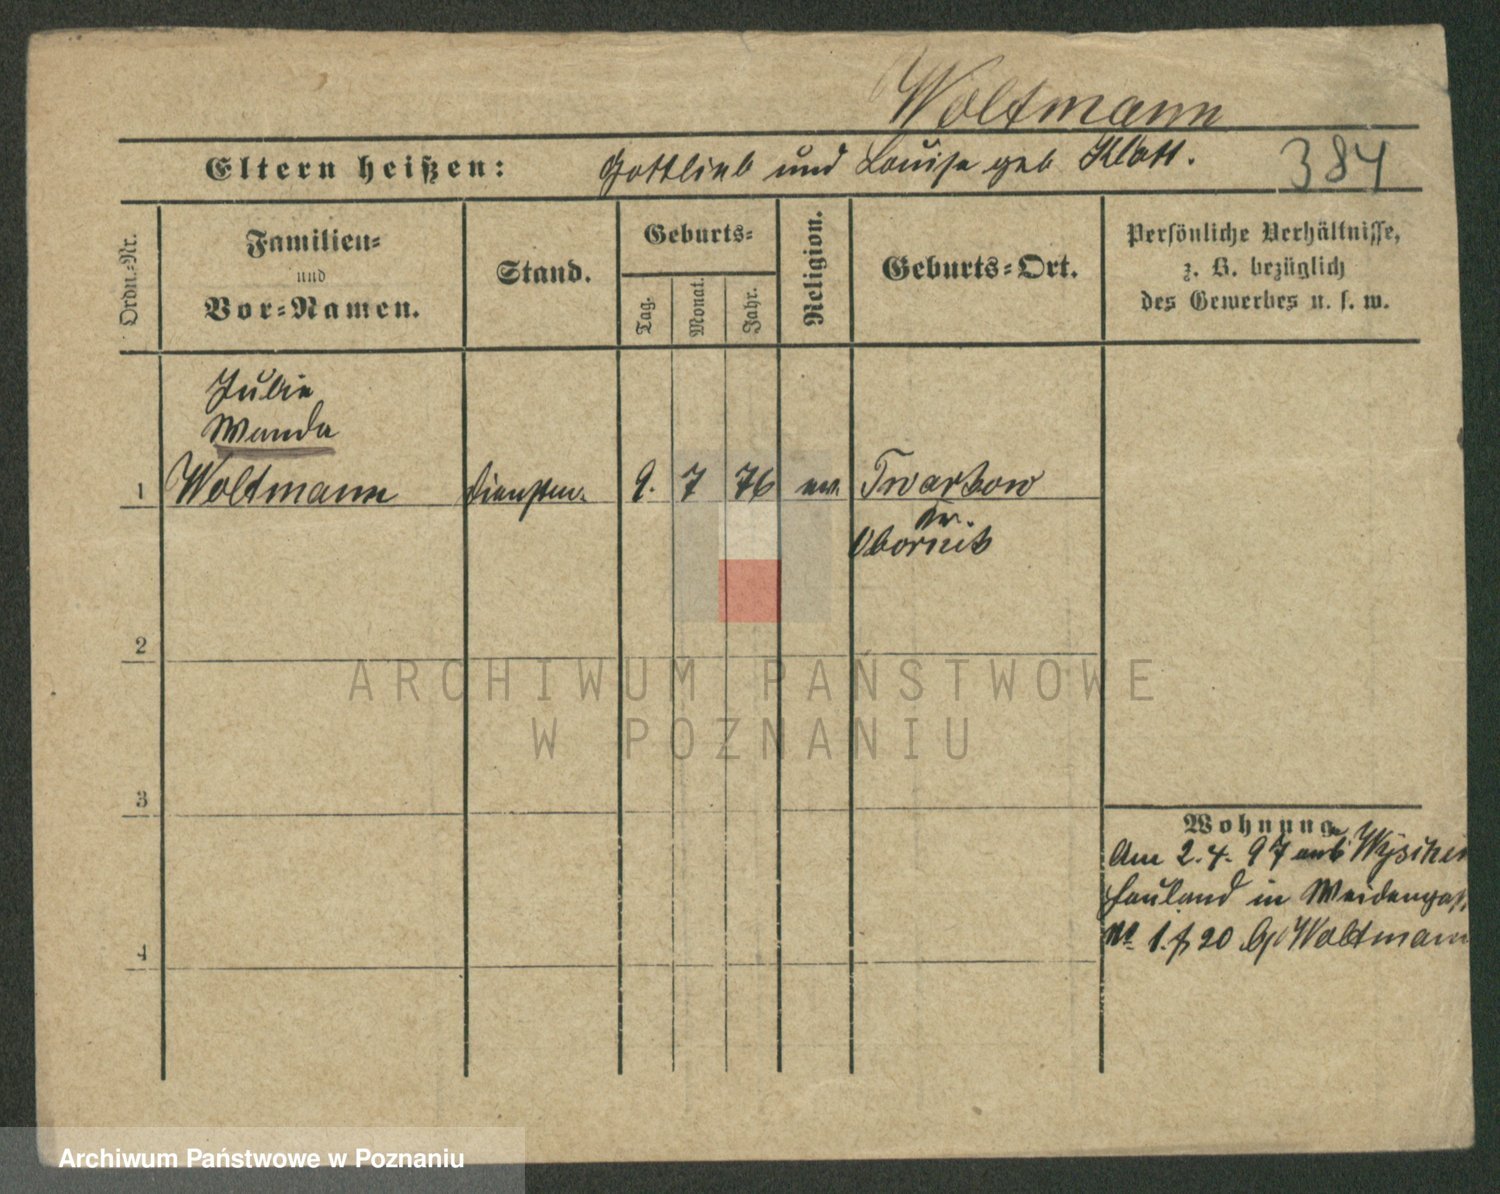 Woltmann
Eltern heißen: Gottlieb und Louise geb Klatt. 384
Ordn.=Nr.
Familien=
und
Vor=Namen.
Stand.
Geburts=
Tag.
Monat.
Jahr.
Religion.
Geburts=Ort.
Persönliche Verhältnisse,
z. B. bezüglich
des Gewerbes u. s. w.
Julie
Wanda
1 Woltmann 9. 7 76 ev. Twarkow
Kr.
Obornik
2
3
4
Wohnung
Am 2. 4. 97 aus
hauland in Weidengass
No 1. 20 Woltmann
ARCHIWUM PAŃSTWOWE
W POZNANIU
Archiwum Państwowe w Poznaniu